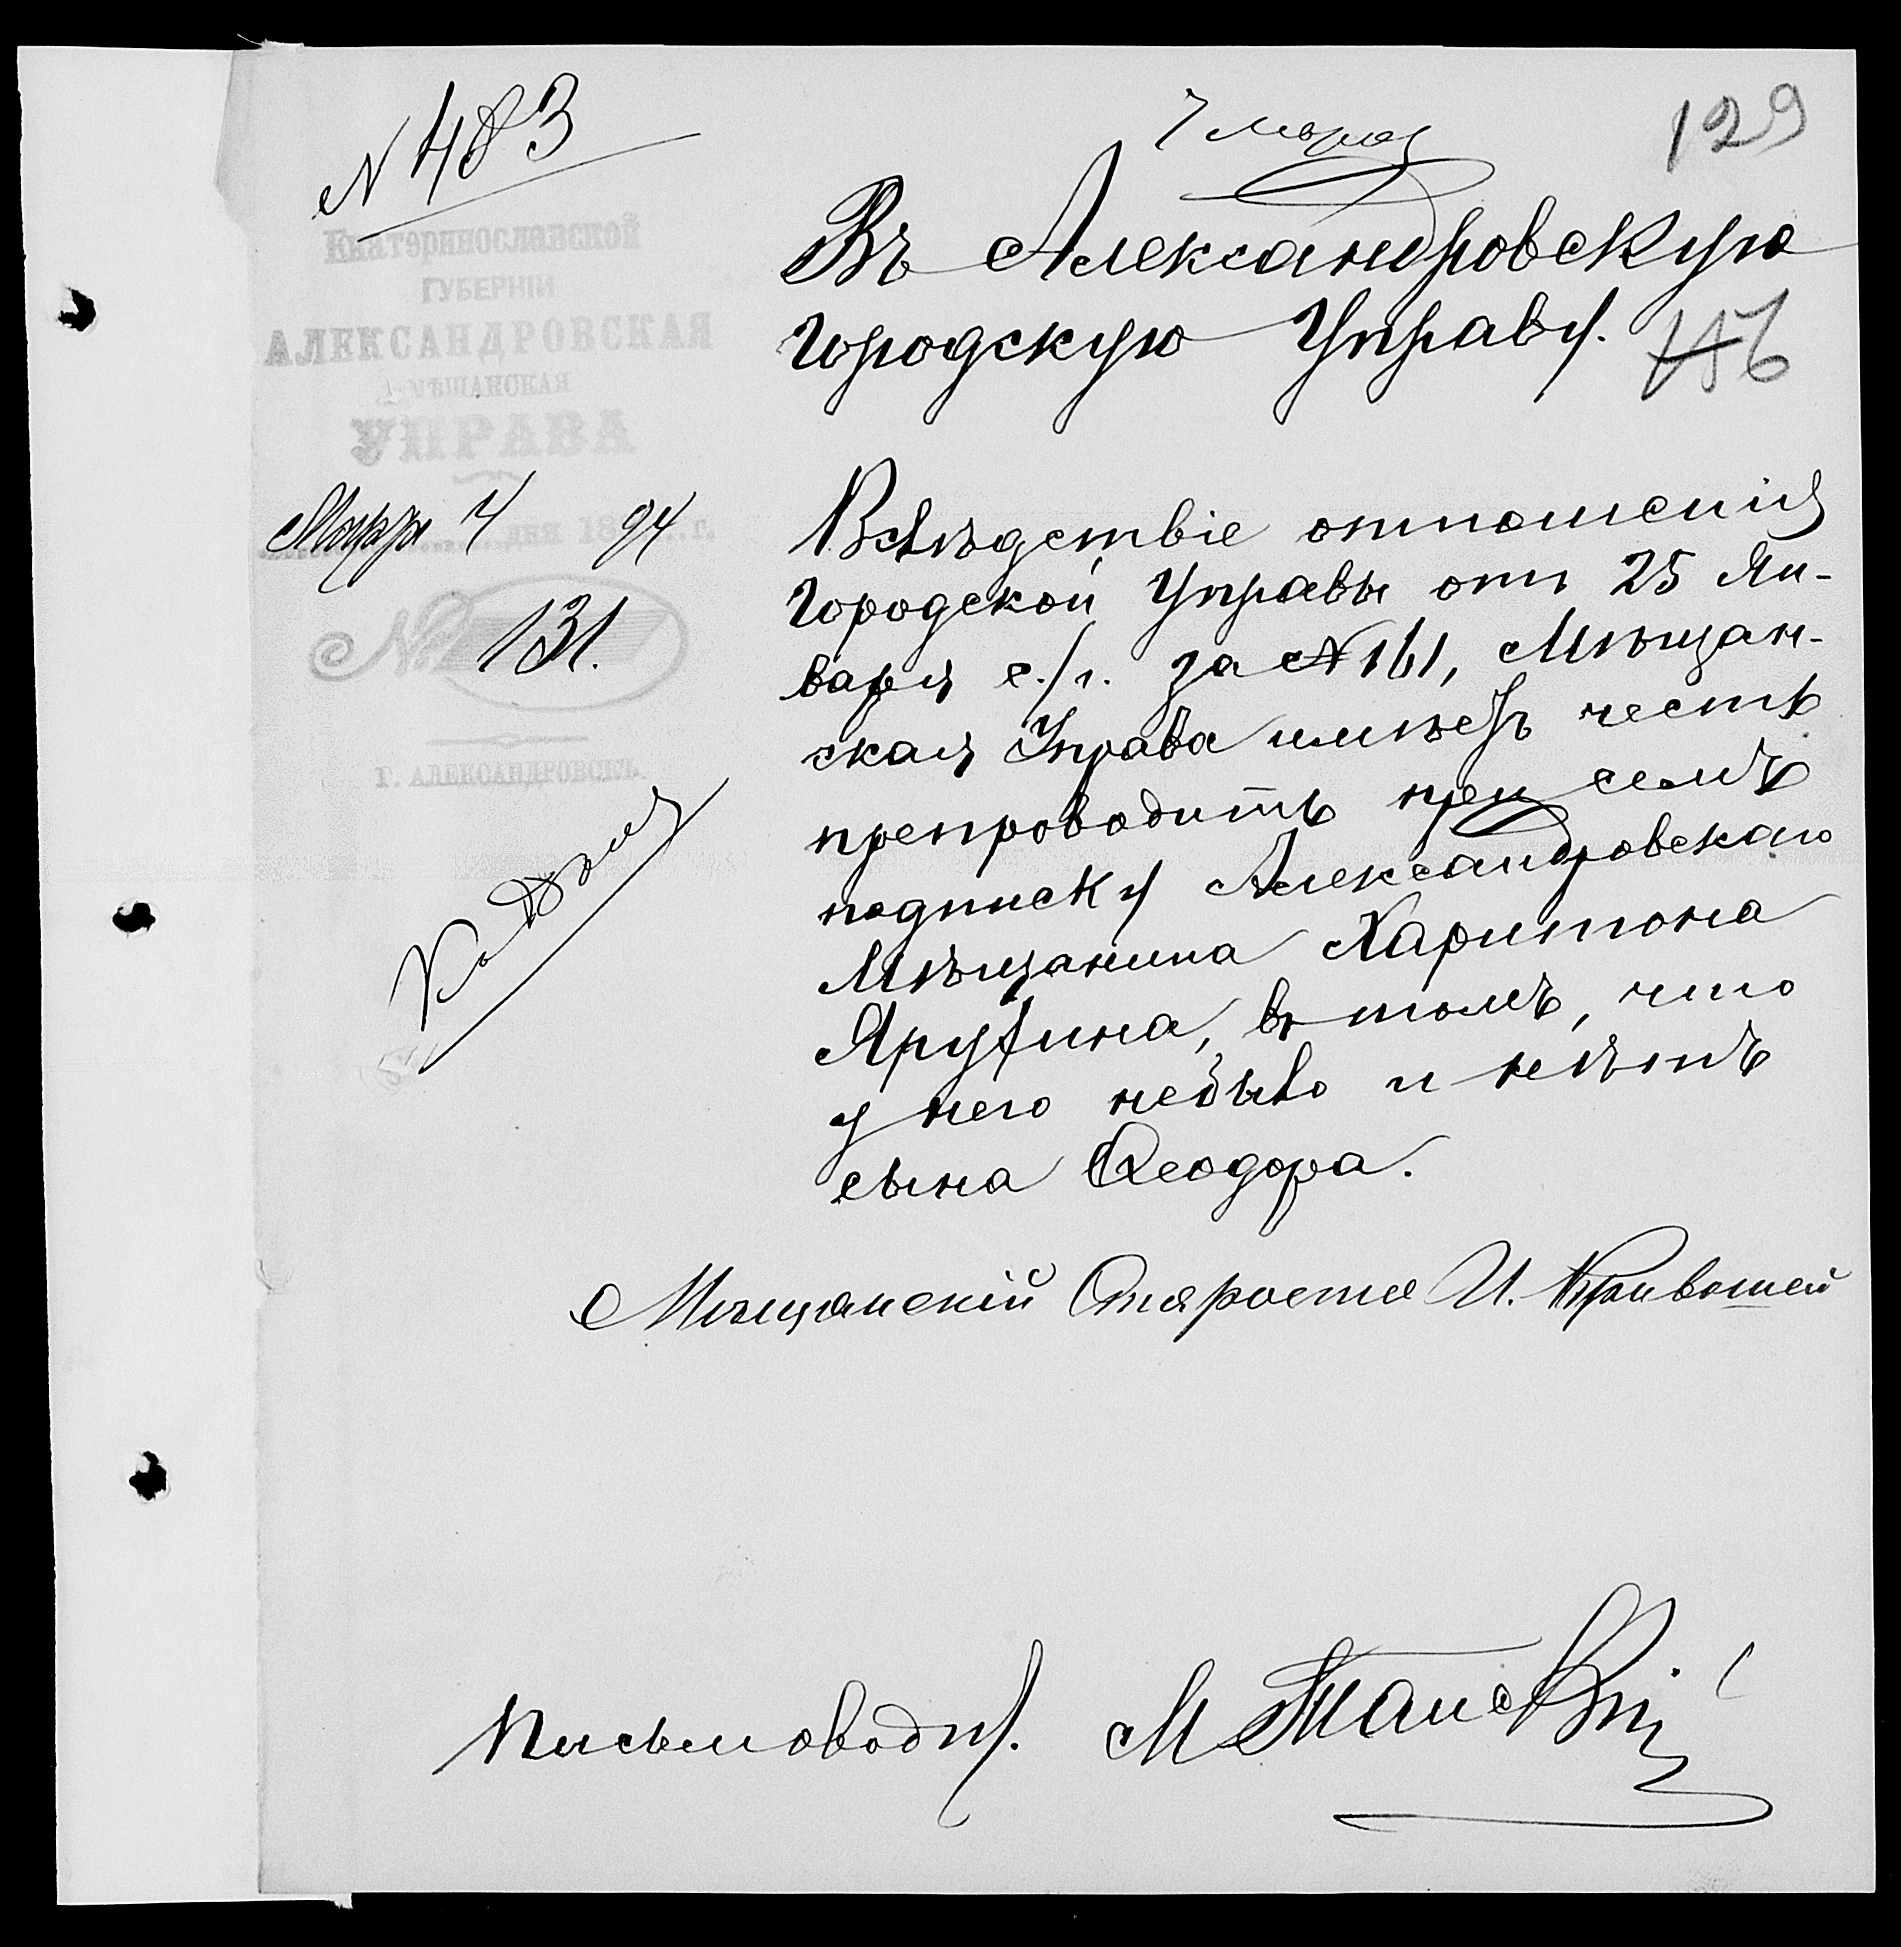 № 483
7 марта
129
Екатеринославской
ГУБЕРНІИ
АЛЕКСАНДРОВСКАЯ
МѢЩАНСКАЯ
УПРАВА
Марта 4 дня 1894 г.
№ 131.
Г. АЛЕКСАНДРОВСКЪ.
Къ дѣлу
Въ Александровскую
Городскую Управу.
Вслѣдствіе отношенія
Городской Управы отъ 25 Ян-
варя с./г. за № 161, Мѣщан-
ская Управа имѣетъ честь
препроводить при семъ
подписку Александровскаго
Мѣщанина Харитона
въ томъ, что
у него небыло и нѣтъ
сына Ѳеодора.
Мѣщанскій Староста И. Кривошей
Письмовод.